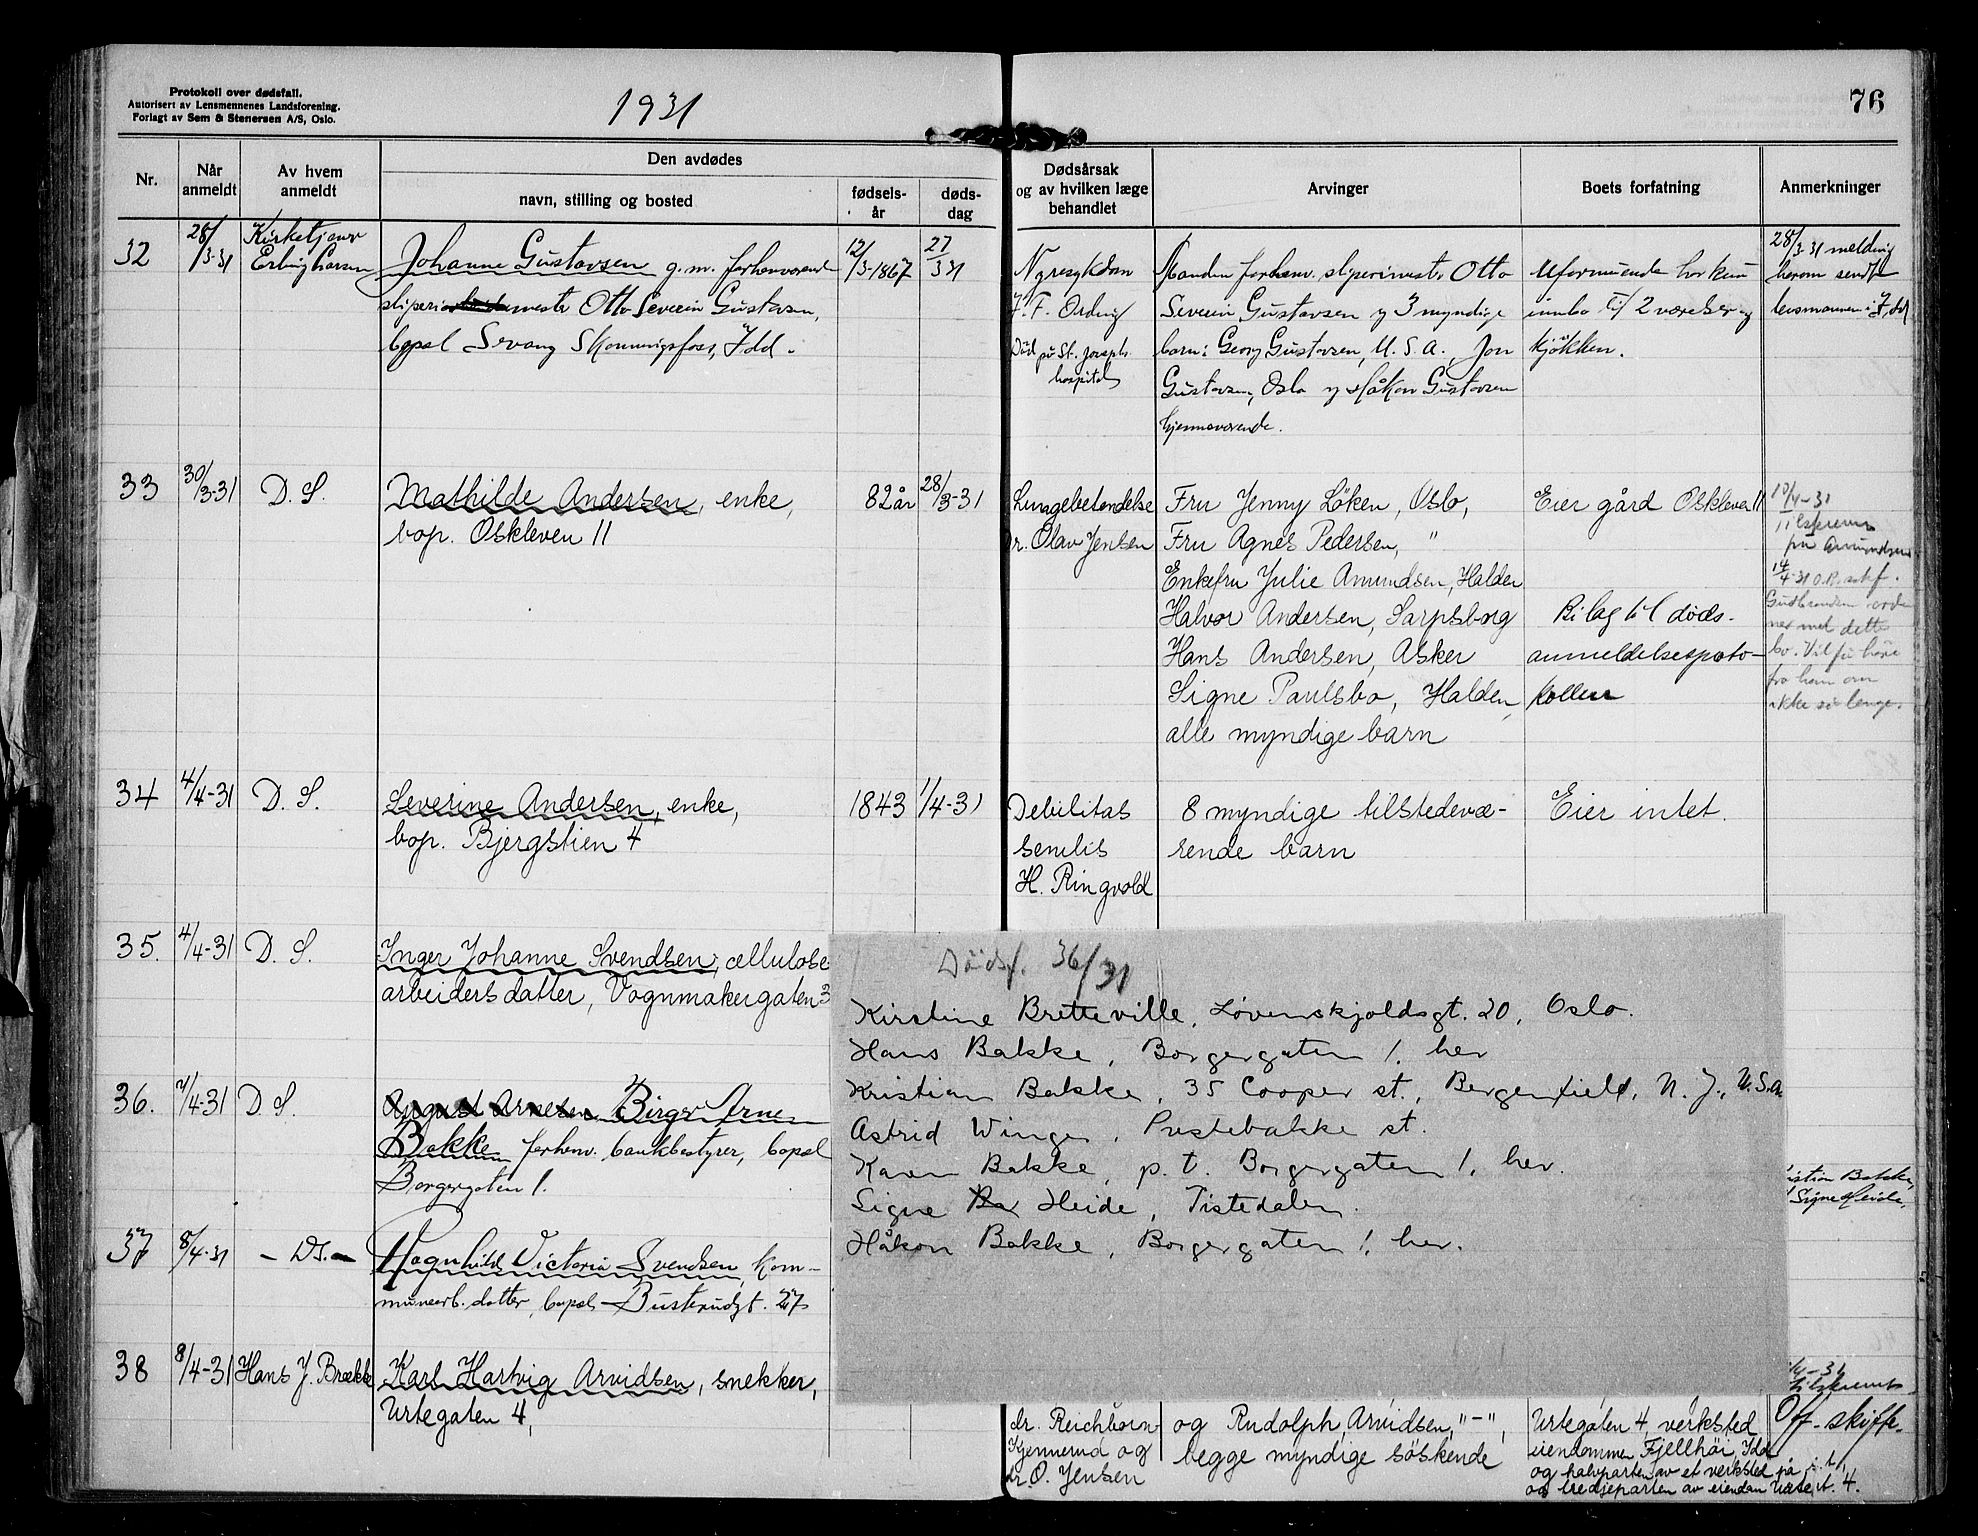 Protokoll over dødsfall.
Autorisert av Lensmennenes Landsforening.
Forlagt av Sem & Stenersen A/S, Oslo.
1931
76
Nr.
Når anmeldt
Av hvem anmeldt
Den avdødes
navn, stilling og bosted
fødsels-år
døds-dag
Dødsårsak og av hvilken læge behandlet
Arvinger
Boets forfatning
Anmerkninger
32
28/3-31
Kirketjener
Erling Larsen
Johanne Gustavsen g. m. forhenværende
sliperimester Otto Severin Gustavsen,
bopel Svang Skonningsfoss, Idd.
12/3-1867
27/3 31
Nyresykdom
F. Ording
Død på St. Josephs
hospital
Manden forhenv. sliperimestr. Otto
Severin Gustavsen og 3 myndige
barn: Georg Gustavsen, U.S.A., Jon
Gustavsen, Oslo og Håkon Gustavsen
hjemmeværende.
Uformuende har kun
innbo til 2 værelser og
kjøkken.
28/3 31 melding
herom sendt
lensmannen i Idd
33
30/3-31
D. S.
Mathilde Andersen, enke,
bop. Oskleven 11
82 år
28/3-31
Lungebetendelse
r. Olav Jensen
Fru Jenny Löken, Oslo,
Fru Agnes Pedersen, "
Enkefru Julie Amundsen, Halden
Halvor Andersen, Sarpsborg
Hans Andersen, Asker
Signe Paulsbo, Halden,
alle myndige barn
Eier gård Oskleven 11
Bilag til døds-
anmeldelsesproto-
kollen
10/4-31
tilskrevet
fru Amundsen
14/4-31 O.R.sakf.
Gudbrandsen ord-
ner med dette
bo. Vil få høre
fra ham om
ikke så lenge.
34
4/4-31
D. S.
Severine Andersen, enke,
bop. Bjergstien 4
1843
1/4-31
Debilitas
senilis
H. Ringvold
8 myndige tilstedevæ-
rende barn
Eier intet.
35.
4/4-31
D. S.
Inger Johanne Svendsen, cellulose
arbeiders datter, Vognmakergaten 3
36.
7/4-31
D. S.
August Arnesen Birger Arne
Bakke forhenv. bankbestyrer, bopel
Borgergaten 1.
Dødsf. 36/31
Kirstine Bretteville, Løvenskjoldsgt. 20, Oslo.
Hans Bakke, Borgergaten 1, her
Kristian Bakke, 35 Cooper st., Bergenfield, N. J., U.S.A.
Astrid Winge, Prestebakke st.
Karen Bakke, p. t. Borgergaten 1, her.
Signe Ba Heide, Tistedalen.
Håkon Bakke, Borgergaten 1, her.
istian Bakke,
Signe Heide,
37
8/4-31
- Ds. -
Ragnhild Victoria Svendsen, kom-
munearb. datter, bopel Busterudgt. 27
38
8/4-31
Hans J. Brække
Karl Hartvig Arvidsen, snekker,
Urtegaten 4,
dr. Reichborn-
Kjennerud og
dr O. Jensen
og Rudolph Arvidsen, "-",
begge myndige söskende
Urtegaten 4, verksted
eiendommen Fjellhöi, Idd
og halvparten av et verksted på
og tredjeparten av eiendom Urtegt. 4.
tilskrevet
Off. skifte.